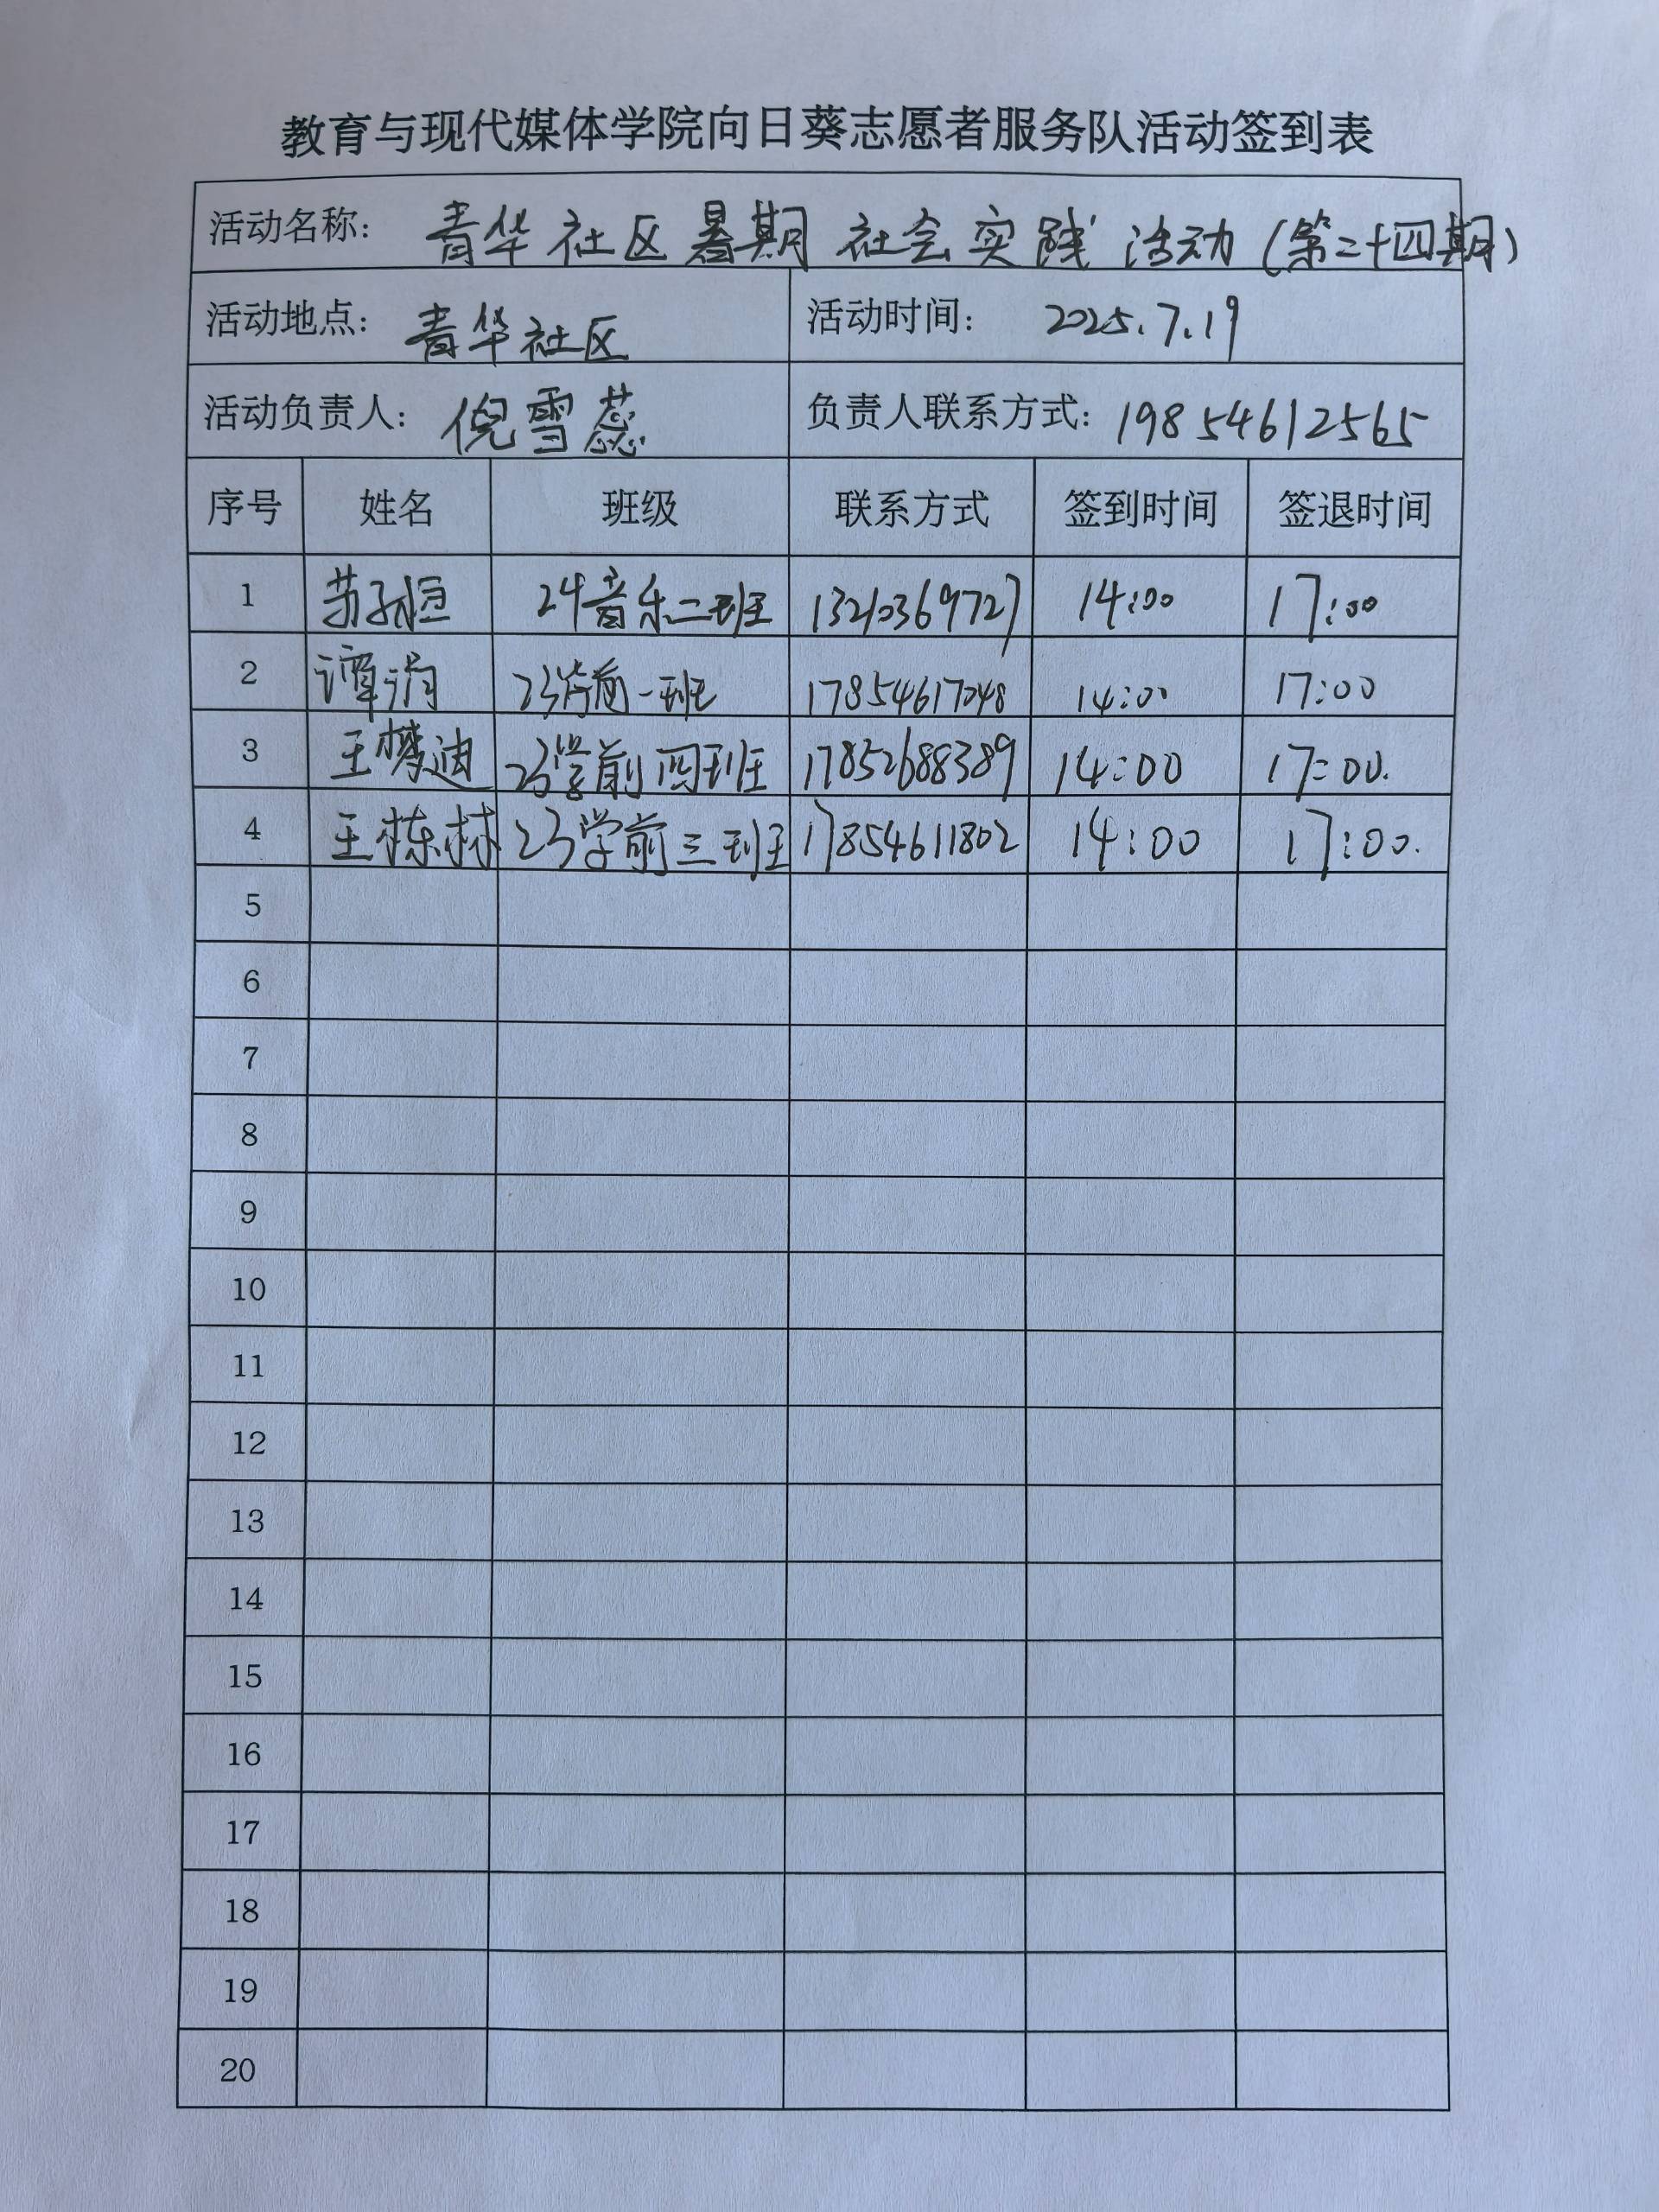 教育与现代媒体学院向日葵志愿者服务队活动签到表
活动名称： 青华社区暑期社会实践活动（第二十四期）
活动地点： 青华社区 活动时间： 2025.7.19
活动负责人： 倪雪蕊 负责人联系方式： 19854612565
序号 姓名 班级 联系方式 签到时间 签退时间
1 苏子恒 24音乐二班 13210369727 14:00 17:00
2 谭渭 23学前一班 17854617048 14:00 17:00
3 王梦迪 23学前四班 17852688389 14:00 17:00.
4 王栋林 23学前三班 17854611802 14:00 17:00.
5
6
7
8
9
10
11
12
13
14
15
16
17
18
19
20